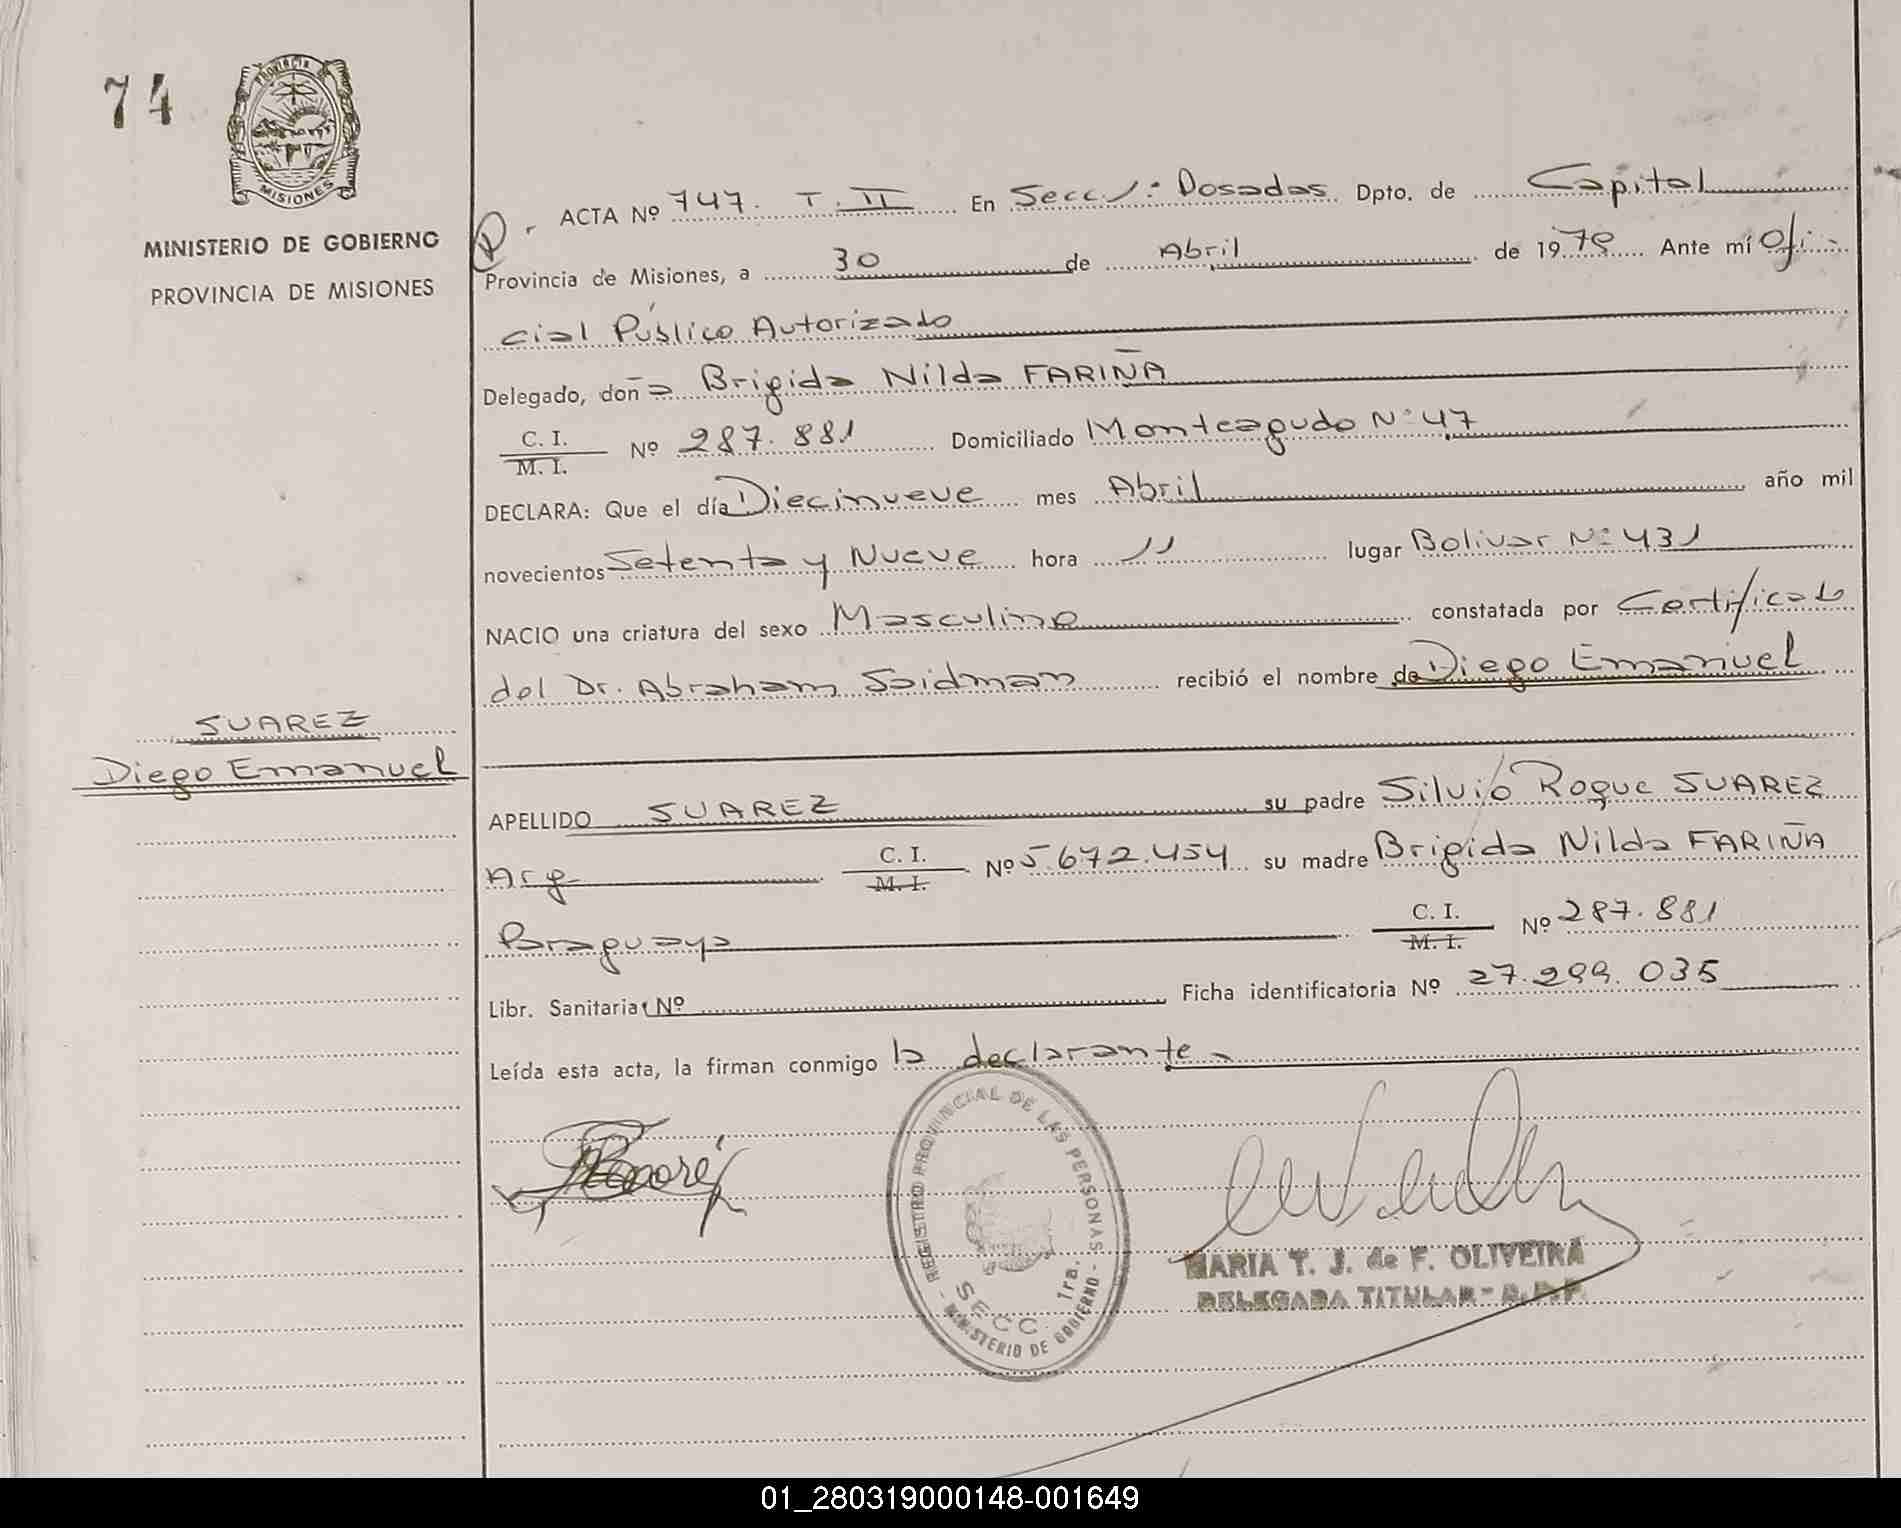 74
PROVINCIA
MISIONES
MINISTERIO DE GOBIERNO
PROVINCIA DE MISIONES
ACTA Nº 747. T. II En Secc 1: Posadas Dpto. de Capital
Provincia de Misiones, a 30 de Abril de 1979 Ante mí Ofi-
cial Público Autorizado
Delegado, doña Brigida Nilda FARIÑA
C. I.
M. I. Nº 287.881 Domiciliado Monteagudo Nº 47
DECLARA: Que el día Diecinueve mes Abril año mil
novecientos Setenta y Nueve hora 11 lugar Bolivar Nº 431
NACIO una criatura del sexo Masculino constatada por Certificado
del Dr. Abraham Saidman recibió el nombre de Diego Emanuel
SUAREZ
Diego Emanuel
APELLIDO SUAREZ su padre Silvio Roque SUAREZ
Arg C. I.
M. I. Nº 5.672.454 su madre Brigida Nilda FARIÑA
Paraguaya C. I.
M. I. Nº 287.881
Libr. Sanitaria Nº Ficha identificatoria Nº 27.299.035
Leída esta acta, la firman conmigo la declarante
REGISTRO PROVINCIAL DE LAS PERSONAS
SECC. 1ra.
MINISTERIO DE GOBIERNO
MARIA T. J. de F. OLIVEIRA
DELEGADA TITULAR - R.P.P.
01_280319000148-001649